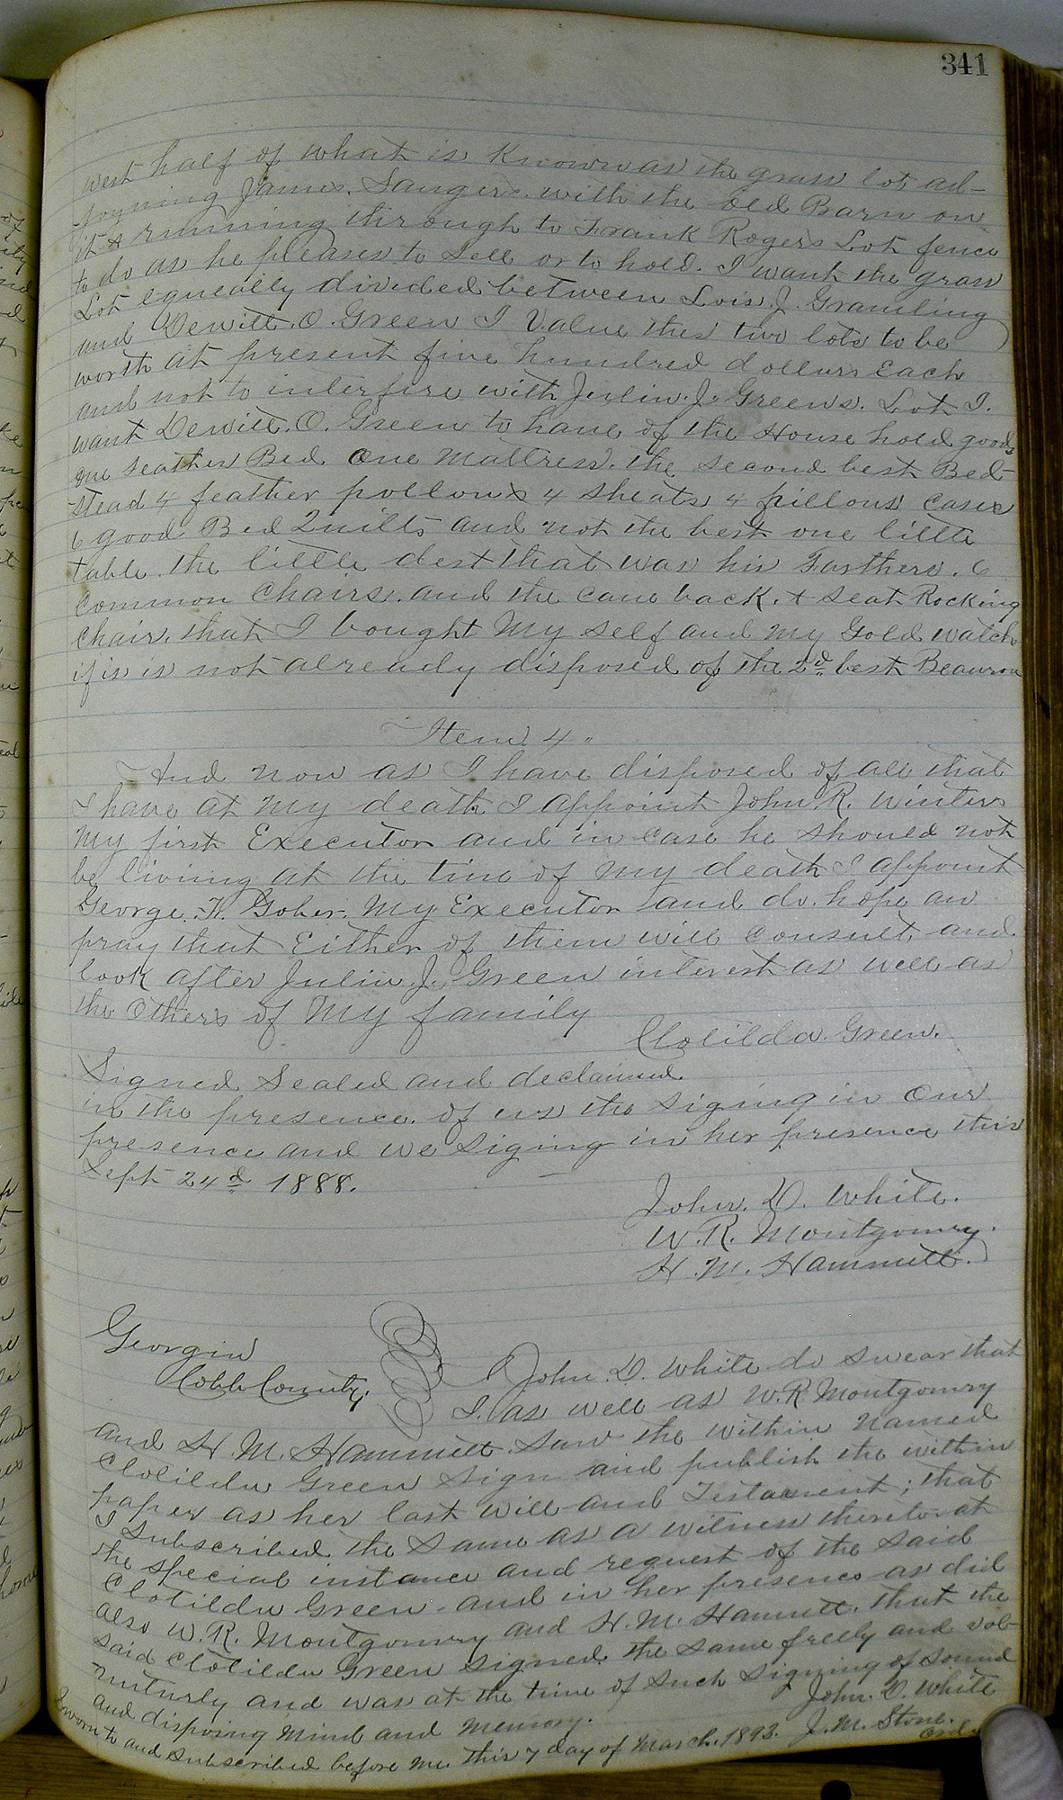 341
west half of what is Known as the grass lot ad-
joyning James Sanges. with the old Barn on
it & running through to Frank Rogers Lot fence
to do as he pleases to Sell or to hold. I want the grass
Lot equeally divided between Lois J. Gramling
and Dewitt. O. Green I Value thes two lots to be
worth at present five hundred dollars Each
and not to interfire with Julin. J. Greens. Lot I.
want Dewitt. O. Green to have of the House hold goods
one feather Bed One Mattress. the second best Bed-
stead 4 feather pollows 4 sheats 4 pillows cases
6 good Bed Quilts and not the best one little
table. the little dest that was his Farthers. 6
Common Chairs. and the cane back. & seat Rocking
Chair, that I bought My self and My Gold watch
if is is not already disposed of the 2d best Beauro
Item 4.
And now as I have disposed of all that
I have at My death I appoint John R. Winters
My first Executor and in case he should not
be living at the time of My death I appoint
George. H. Gober. My Executor and do. hope an
pray that Either of them will Consult, and
look after Julin. J. Green interest as well as
the Others of My family
Clotilda Green.
Signed Sealed and declaimed.
in the presence. of us the Signing in Our
presence and we Signing in her presence this
Sept 24d 1888.
John. D. White.
W. R. Montgomry.
H. M. Hammett.
Georgia
Cobb County.
I John. D. White do swear that
I. as well as W. R. Montgomry
and H. M. Hammett. Saw the within named
Clotilda Green Sign and publish the within
paper as her last will and Testament; that
I Subscribed the Same as a witness thereto at
the special instance and request of the Said
Clotilda Green. and in her presence as did
also W. R. Montgomry and H. M. Hammett. that the
said Clotilda Green Signed the same freely and vol-
unturly and was at the time of Such Signing of Sound
and disposing Mind and Memory.
John. D. White
Sworn to and Subscribed before Me. this 7 day of March. 1893. J. M. Stone.
Ord.